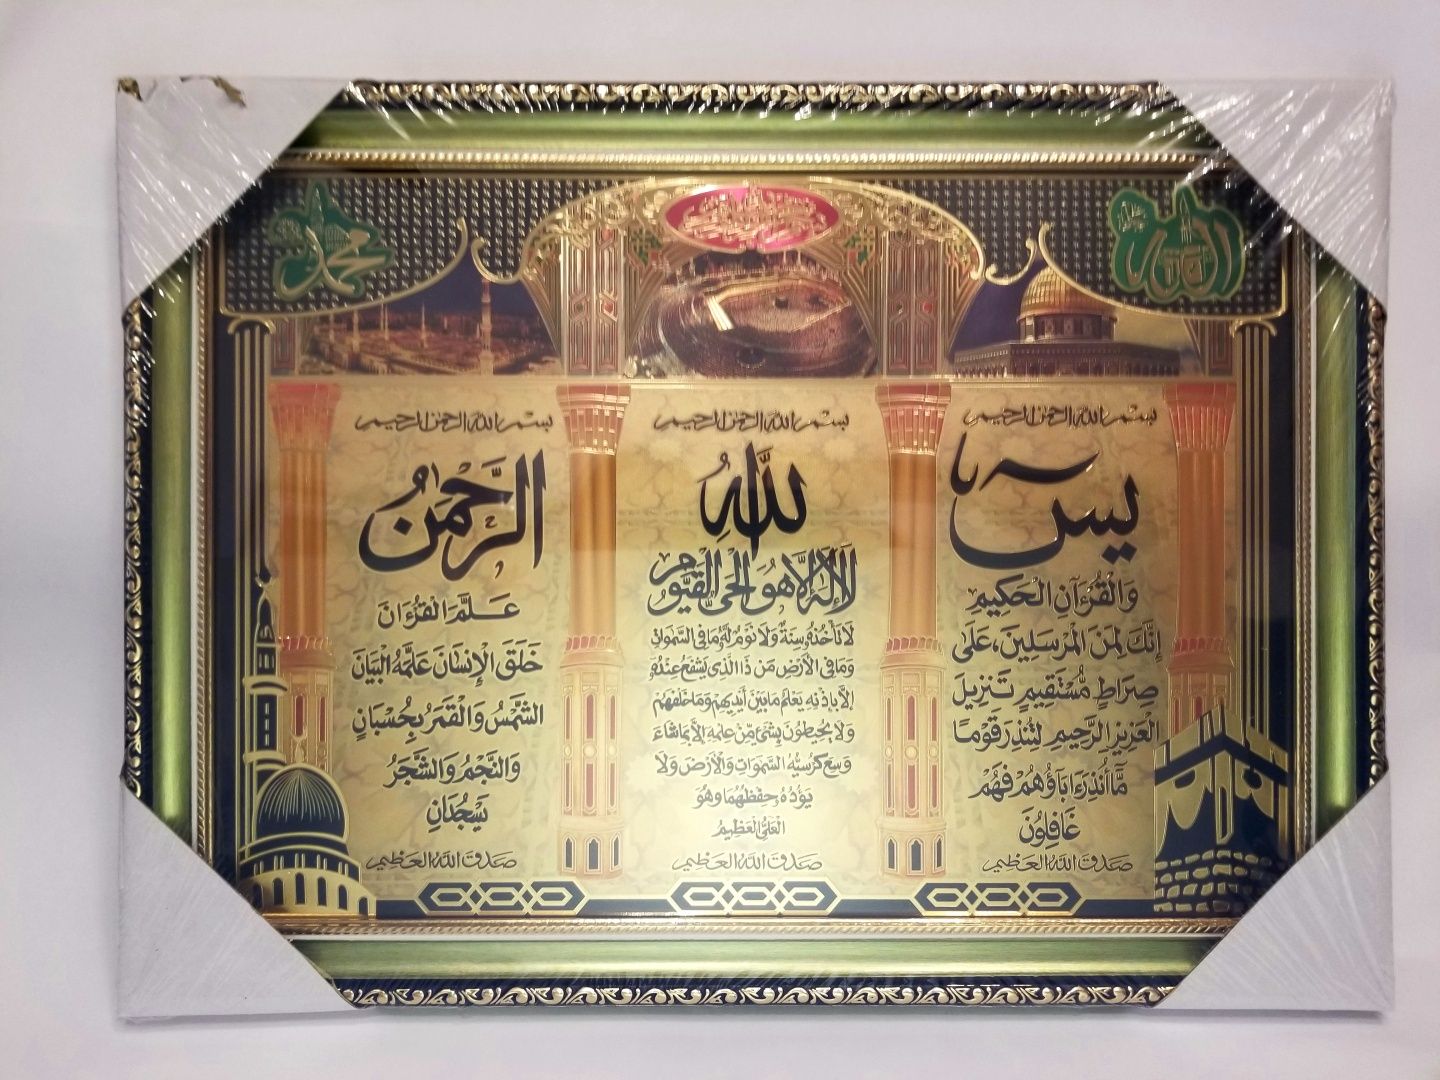 الله
محمد
بسم الله الرحمن الرحيم
يس
وَالْقُرْآنِ الْحَكِيمِ
إِنَّكَ لَمِنَ الْمُرْسَلِينَ، عَلَى
صِرَاطٍ مُّسْتَقِيمٍ تَنزِيلَ
الْعَزِيزِ الرَّحِيمِ لِتُنذِرَ قَوْمًا
مَّا أُنذِرَ ءَابَاؤُهُمْ فَهُمْ
غَافِلُونَ
صدق الله العظيم
بسم الله الرحمن الرحيم
اللَّهُ
لَا إِلَهَ إِلَّا هُوَ الْحَيُّ الْقَيُّومُ
لَا تَأْخُذُهُ سِنَةٌ وَلَا نَوْمٌ لَهُ مَا فِي السَّمَوَاتِ
وَمَا فِي الْأَرْضِ مَن ذَا الَّذِي يَشْفَعُ عِنْدَهُ
إِلَّا بِإِذْنِهِ يَعْلَمُ مَا بَيْنَ أَيْدِيهِمْ وَمَا خَلْفَهُمْ
وَلَا يُحِيطُونَ بِشَيْءٍ مِّنْ عِلْمِهِ إِلَّا بِمَا شَاءَ
وَسِعَ كُرْسِيُّهُ السَّمَوَاتِ وَالْأَرْضَ وَلَا
يَؤُدُهُ حِفْظُهُمَا وَهُوَ
الْعَلِيُّ الْعَظِيمُ
صدق الله العظيم
بسم الله الرحمن الرحيم
الرَّحْمَنُ
عَلَّمَ الْقُرْءَانَ
خَلَقَ الْإِنسَانَ عَلَّمَهُ الْبَيَانَ
الشَّمْسُ وَالْقَمَرُ بِحُسْبَانٍ
وَالنَّجْمُ وَالشَّجَرُ
يَسْجُدَانِ
صدق الله العظيم